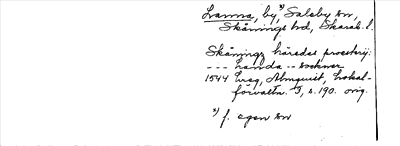 Lamma, by,ˣ⁾ Saleby sn,
Skånings hd, Skarab. l.
Skånings härades prosterij:
--- Landa -- sockner
1544 breg, Almquist, Lokal-
förvaltn. I, s. 190. orig.
ˣ⁾ f. egen sn